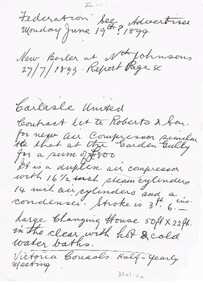 Federation See Advertiser
Monday June 19th? 1899
New Boiler at Nth Johnsons
27/7/1899. Report Page 4
Carlisle United
Contract let to Roberts & Son.
for new Air Compressor similar
to that at the Garden Gully
for a sum of £800
It is a duplex air compressor
with 16½ inch steam cylinders
14 inch air cylinders and a
condenser. Stroke is 3ft, ins
Large Changing House 50ft x 22ft.
in the clear, with hot & cold
water baths.
Victoria Consols Half-Yearly
Meeting